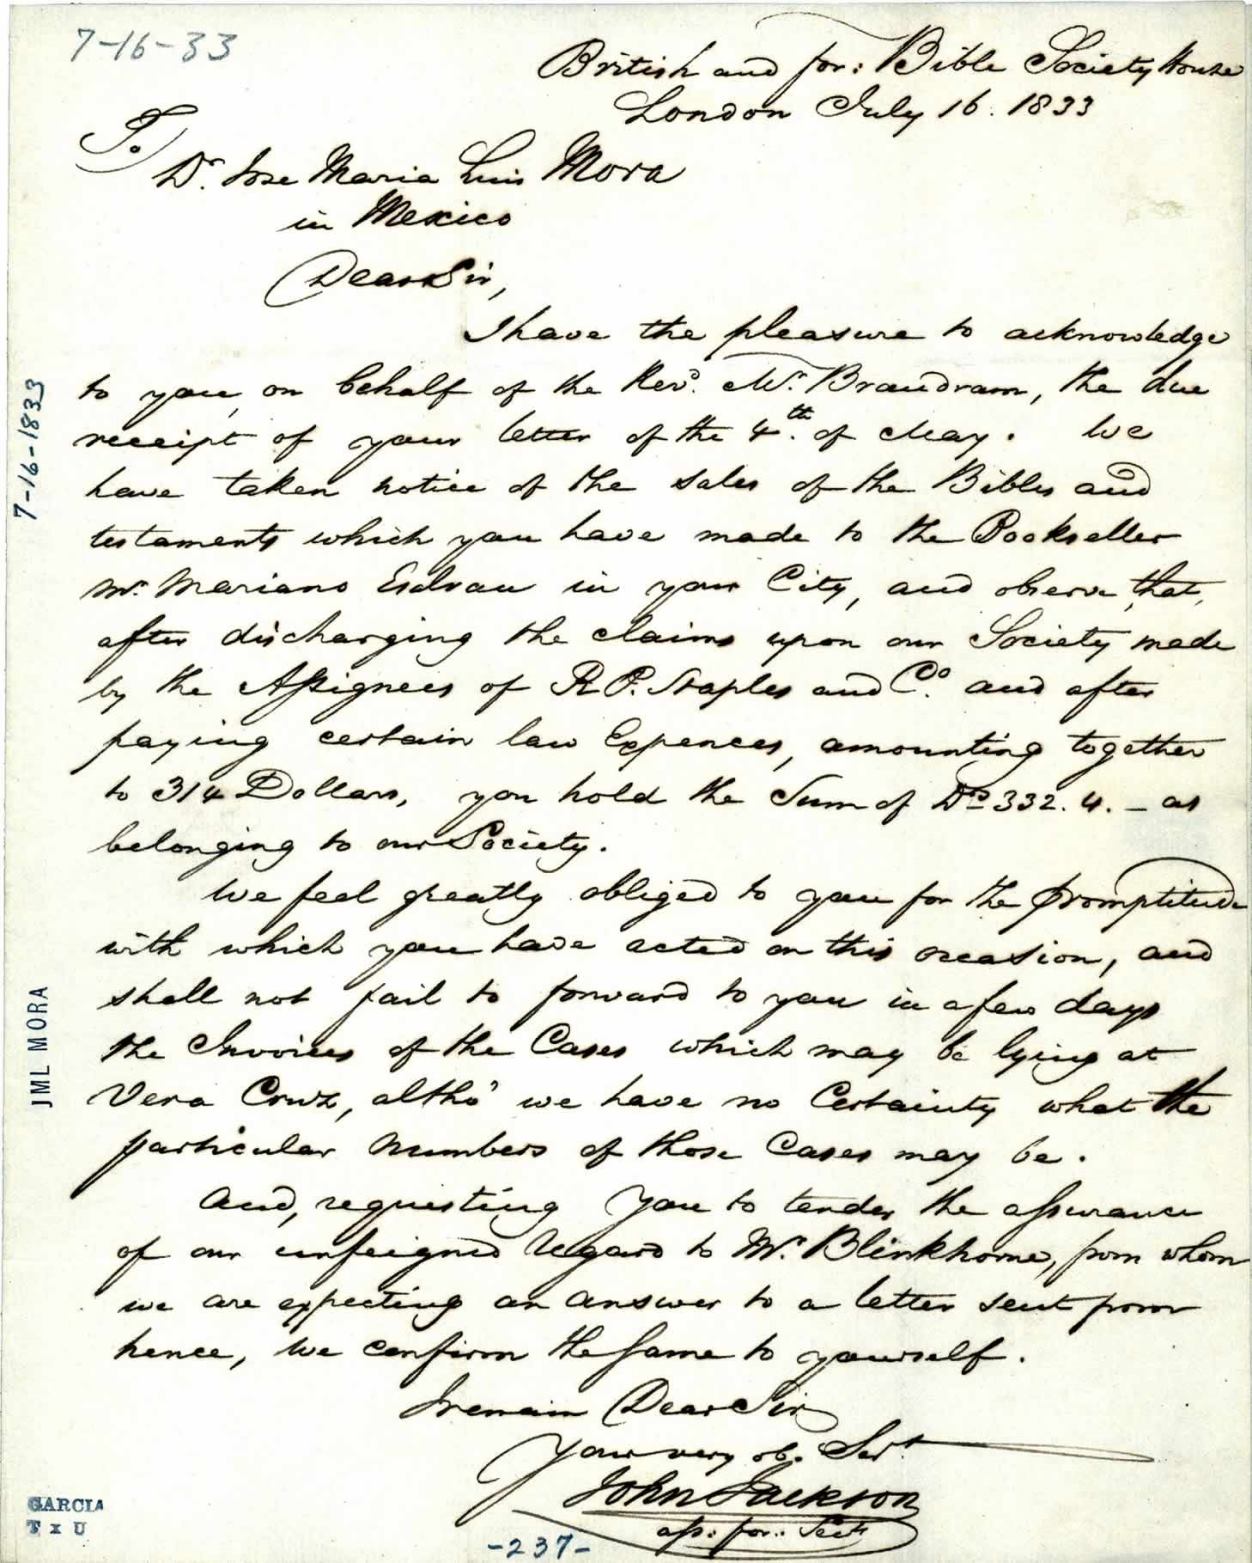 7-16-33
British and for: Bible Society House
London July 16. 1833
To
Dr. Jose Maria Luis Mora
in Mexico
Dear Sir,
I have the pleasure to acknowledge
to you, on behalf of the Revd. Mr. Brandram, the due
receipt of your letter of the 4th. of May. We
have taken notice of the sales of the Bibles and
testaments which you have made to the Bookseller
Mr. Mariano in your City, and observe, that,
after discharging the claims upon our Society made
by the Assignees of R. P. Staples and Co. and after
paying certain law Expences, amounting together
to 314 Dollars, you hold the Sum of Ds 332. 4. – as
belonging to our Society.
We feel greatly obliged to you for the promptitude
with which you have acted on this occasion, and
shall not fail to forward to you in a few days
the Invoices of the Cases which may be lying at
Vera Cruz, altho' we have no Certainty what the
particular Numbers of those Cases may be.
And, requesting you to tender the assurance
of our unfeigned Regard to Mr. Blinkhorne, from whom
we are expecting an answer to a letter sent from
hence, we confirm the same to yourself.
I remain Dear Sir
Your very ob. Servt.
John Jackson
ass: for: Sect
-237-
7-16-1833
JML MORA
GARCIA
TxU